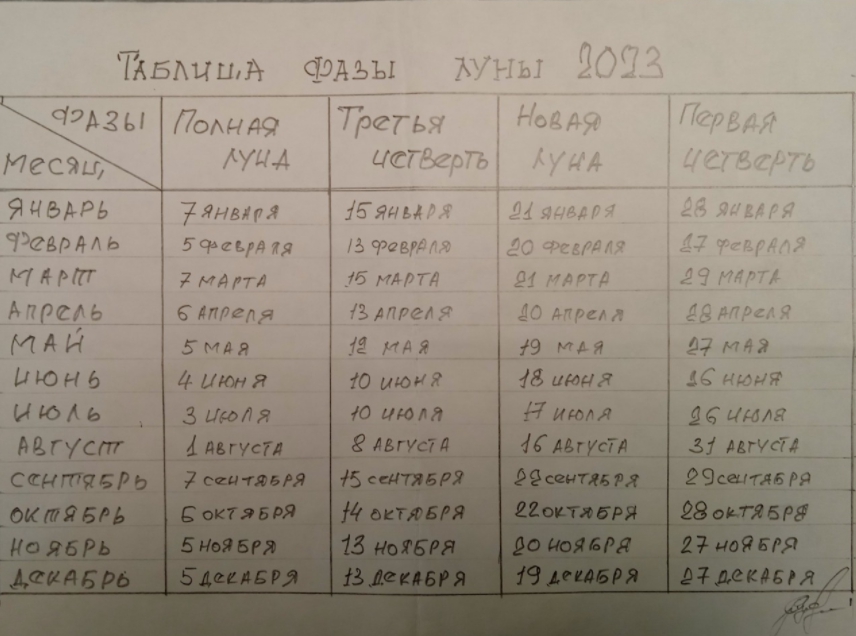 ТАБЛИЦА ФАЗЫ ЛУНЫ 2023
ФАЗЫ
МЕСЯЦ
ПОЛНАЯ ЛУНА
ТРЕТЬЯ ЧЕТВЕРТЬ
НОВАЯ ЛУНА
ПЕРВАЯ ЧЕТВЕРТЬ
ЯНВАРЬ 7 ЯНВАРЯ 15 ЯНВАРЯ 21 ЯНВАРЯ 28 ЯНВАРЯ
ФЕВРАЛЬ 5 ФЕВРАЛЯ 13 ФЕВРАЛЯ 20 ФЕВРАЛЯ 27 ФЕВРАЛЯ
МАРТ 7 МАРТА 15 МАРТА 21 МАРТА 29 МАРТА
АПРЕЛЬ 6 АПРЕЛЯ 13 АПРЕЛЯ 20 АПРЕЛЯ 28 АПРЕЛЯ
МАЙ 5 МАЯ 12 МАЯ 19 МАЯ 27 МАЯ
ИЮНЬ 4 ИЮНЯ 10 ИЮНЯ 18 ИЮНЯ 26 ИЮНЯ
ИЮЛЬ 3 ИЮЛЯ 10 ИЮЛЯ 17 ИЮЛЯ 26 ИЮЛЯ
АВГУСТ 1 АВГУСТА 8 АВГУСТА 16 АВГУСТА 31 АВГУСТА
СЕНТЯБРЬ 7 СЕНТЯБРЯ 15 СЕНТЯБРЯ 22 СЕНТЯБРЯ 29 СЕНТЯБРЯ
ОКТЯБРЬ 6 ОКТЯБРЯ 14 ОКТЯБРЯ 22 ОКТЯБРЯ 28 ОКТЯБРЯ
НОЯБРЬ 5 НОЯБРЯ 13 НОЯБРЯ 20 НОЯБРЯ 27 НОЯБРЯ
ДЕКАБРЬ 5 ДЕКАБРЯ 13 ДЕКАБРЯ 19 ДЕКАБРЯ 27 ДЕКАБРЯ